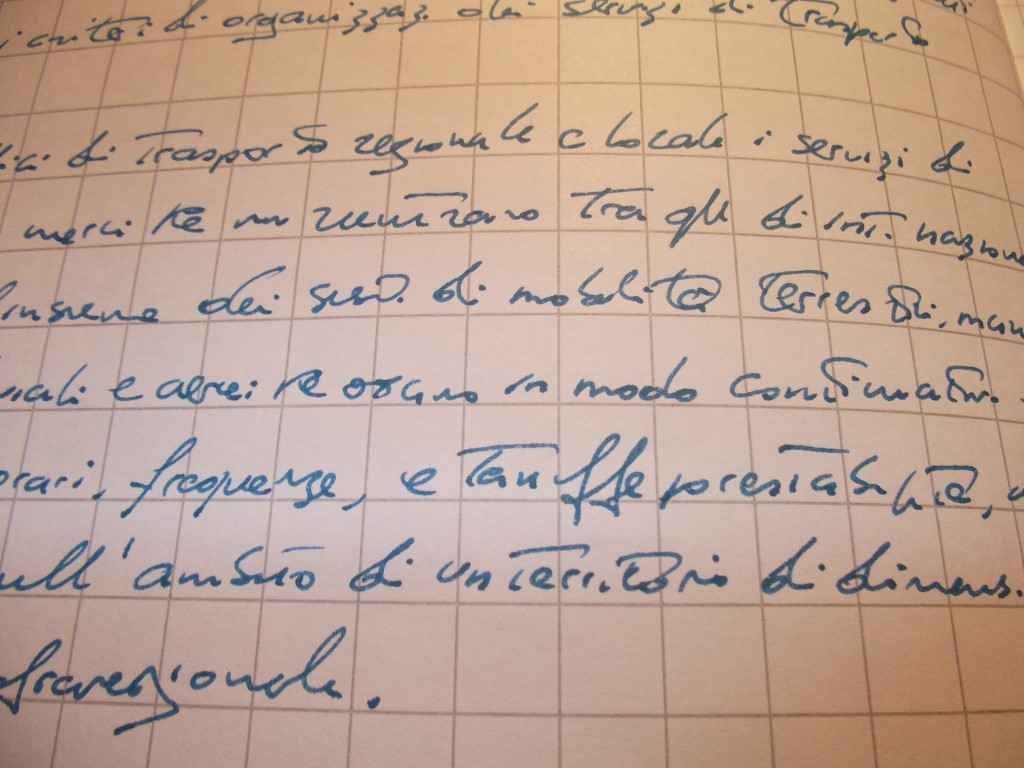 i criteri di organizzaz. dei servizi di trasporto
di trasporto regionale e locale i servizi di
merci tra gli di int. nazion
insieme dei di mobilità terrestri, mar
e aerei in modo continuativ.
orari, frequenze, e tariffe prestabilite,
ull'ambito di un territorio di dimens.
fraregionale.